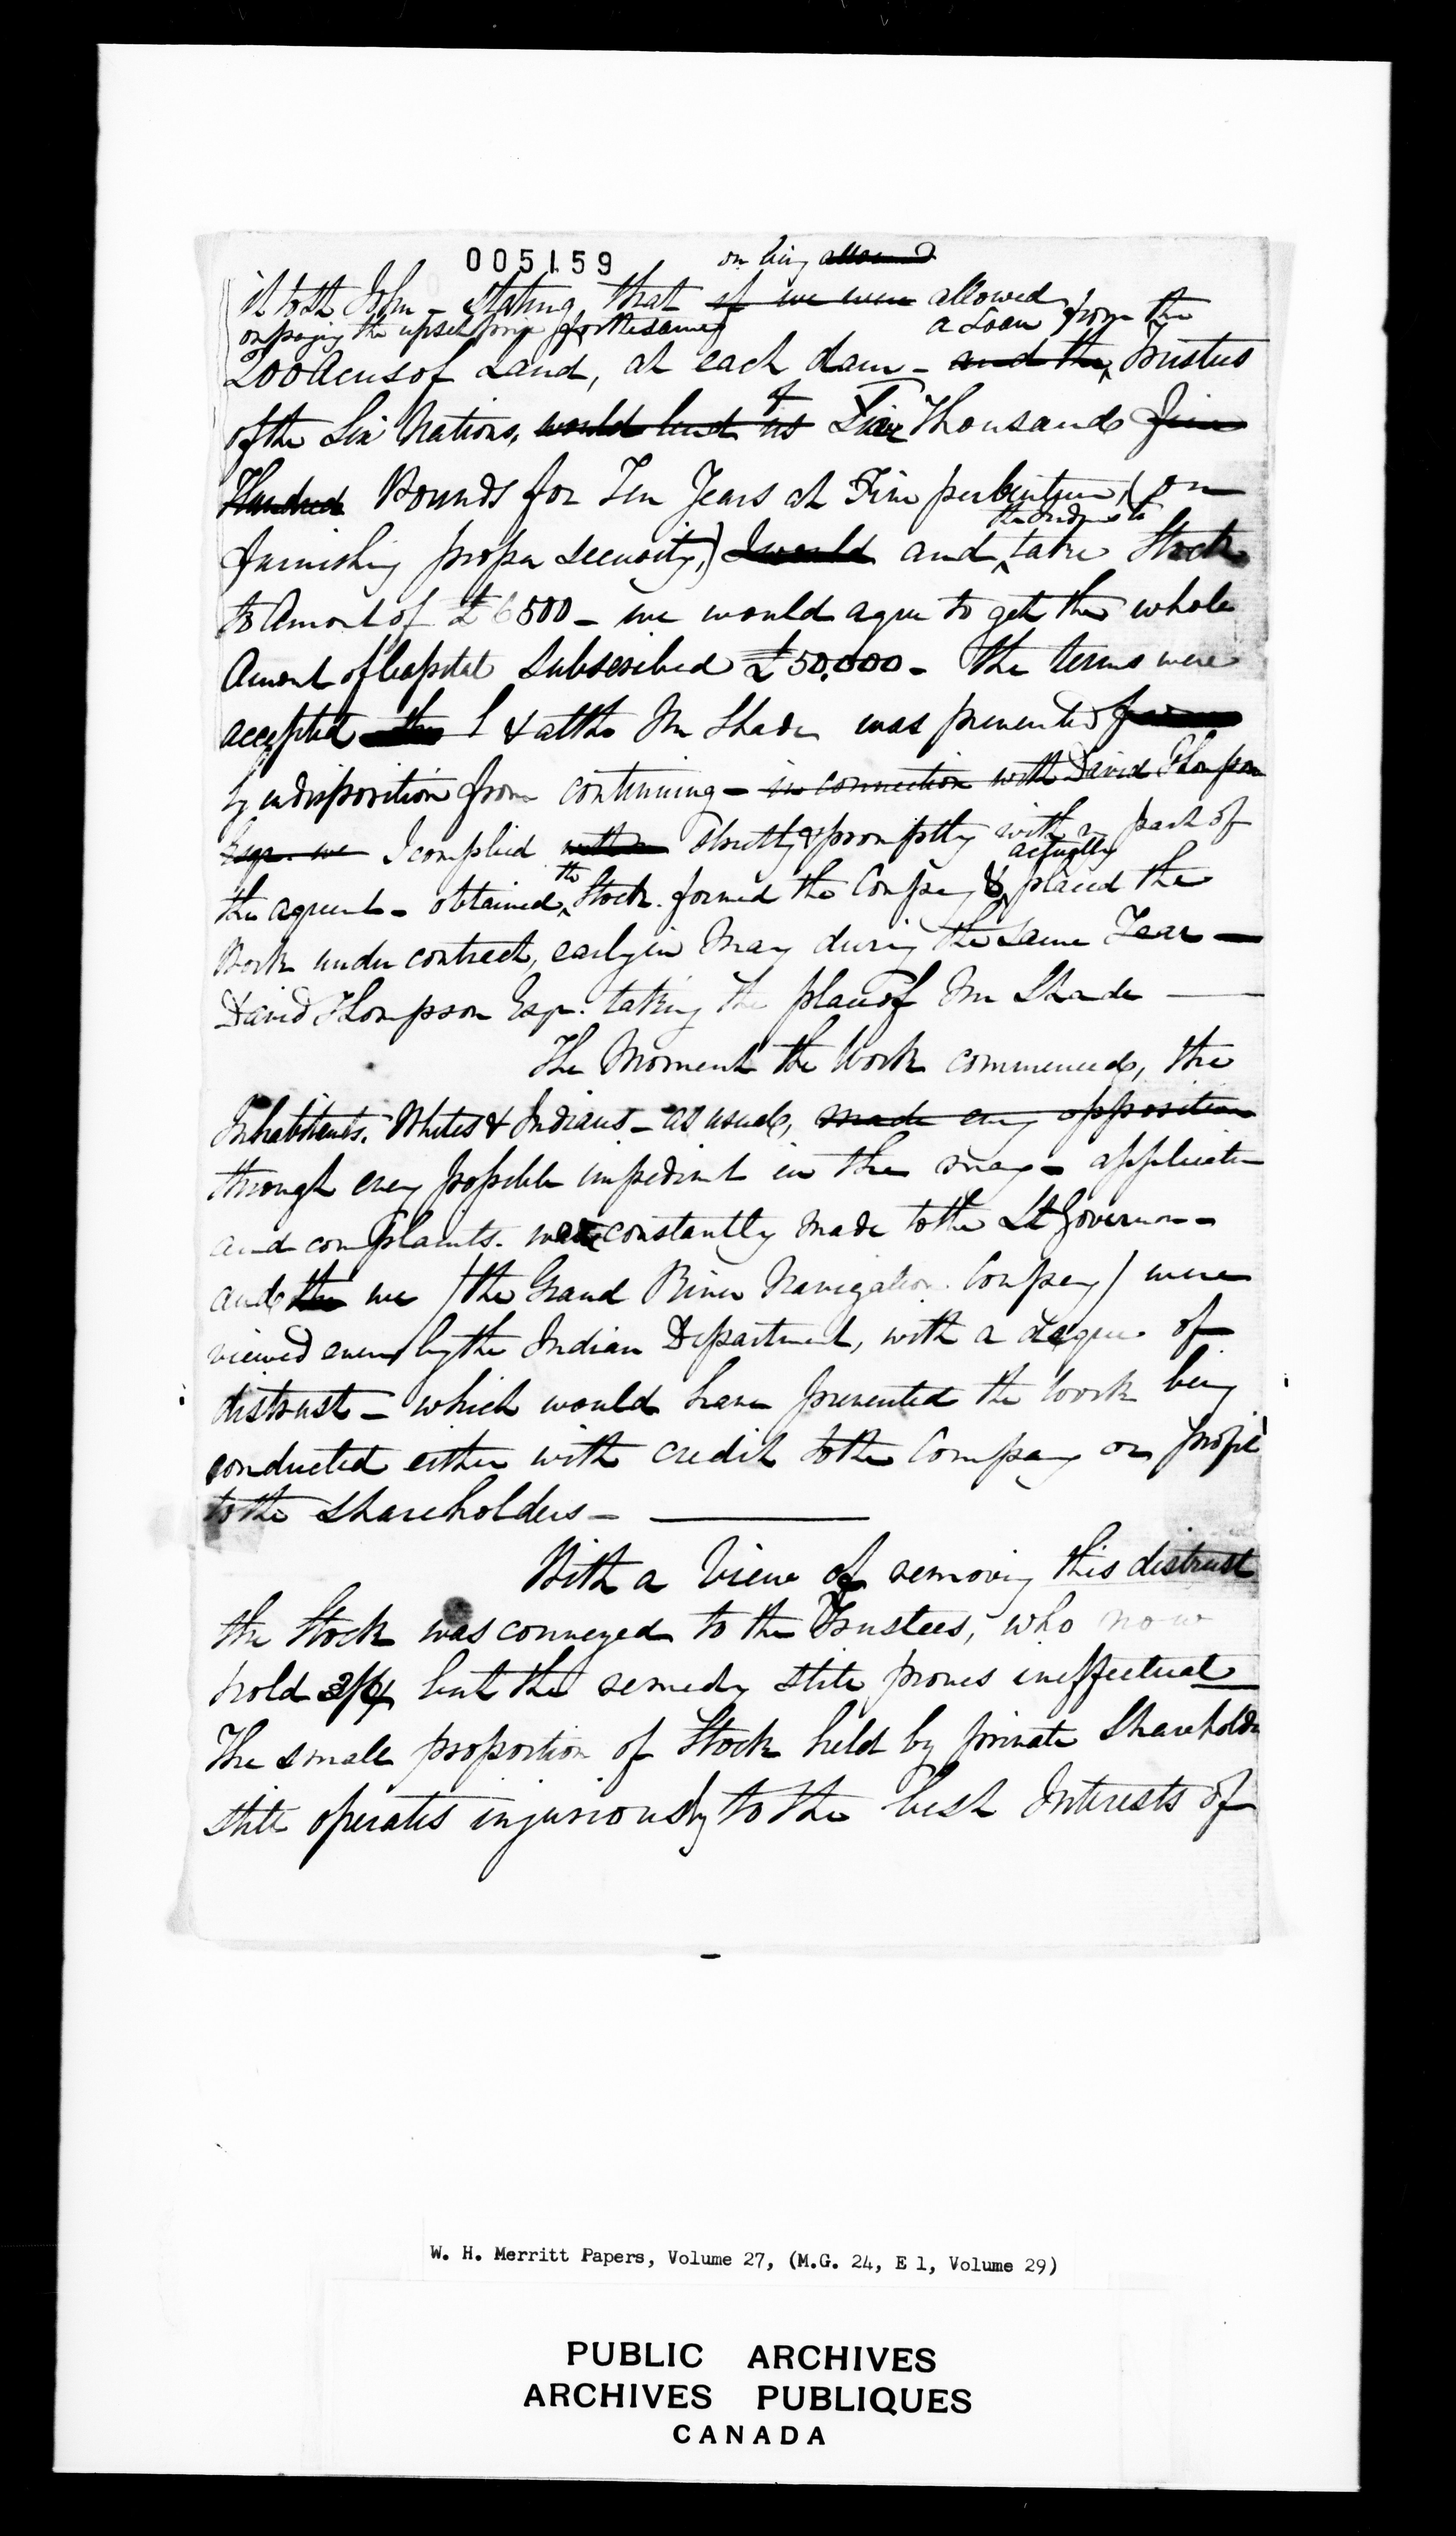 005159
on being allowed
it to Sir John - Stating that if we were allowed
on paying the upset price for the same a Loan from the
200 Acres of Land, at each dam - and the Trustees
of the Six Nations, would lend us of Six Thousand Five
Hundred Pounds for Ten Years at Five per Centum (on
the Indians to
furnishing proper security,) I would and take Stock
to Amont of £6500 - we would agree to get the whole
Amont of Capital Subscribed £50,000 - the terms were
accepted & altho Mr Shade was prevented from
by indisposition from continuing - in connection with David Thompson
Esqr. we I complied with strictly & promptly with my part of
the actually
the agreent - obtained Stock. formed the Compy & placed the
Work under contract, early in May during the same Year -
David Thompson Esqr. taking the place of Mr Shade -
The Moment the Work commenced, the
Inhabitants. Whites & Indians - as usual, made every opposition
through every possible impedimt in the way - application
and complaints. was constantly made to the Lt Governor -
and the we (the Grand River Navigation Compay) were
viewed even by the Indian Department, with a degree of
distrust - which would have prevented the Work being
conducted either with credit to the Company or profit
to the Shareholders -
With a View of removing this distrust
the Stock was conveyed to the Trustees, who now
hold 3/4 but the remedy still proves ineffectual
The small proportion of Stock held by private Shareholders
still operates injuriously to the best Interests of
W. H. Merritt Papers, Volume 27, (M.G. 24, E 1, Volume 29)
PUBLIC ARCHIVES
ARCHIVES PUBLIQUES
CANADA